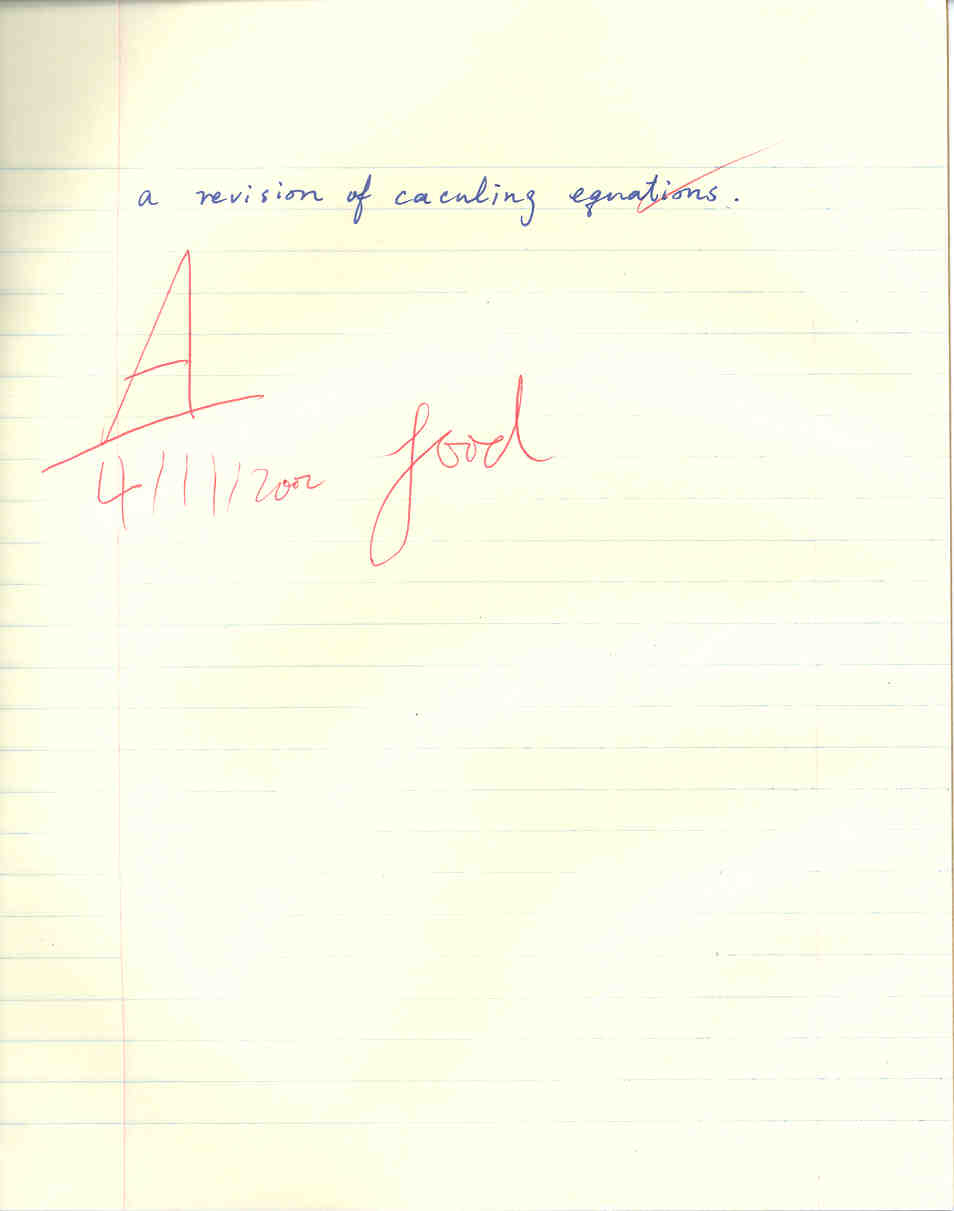 a revision of caculing equations.
A
4/11/2002 Good